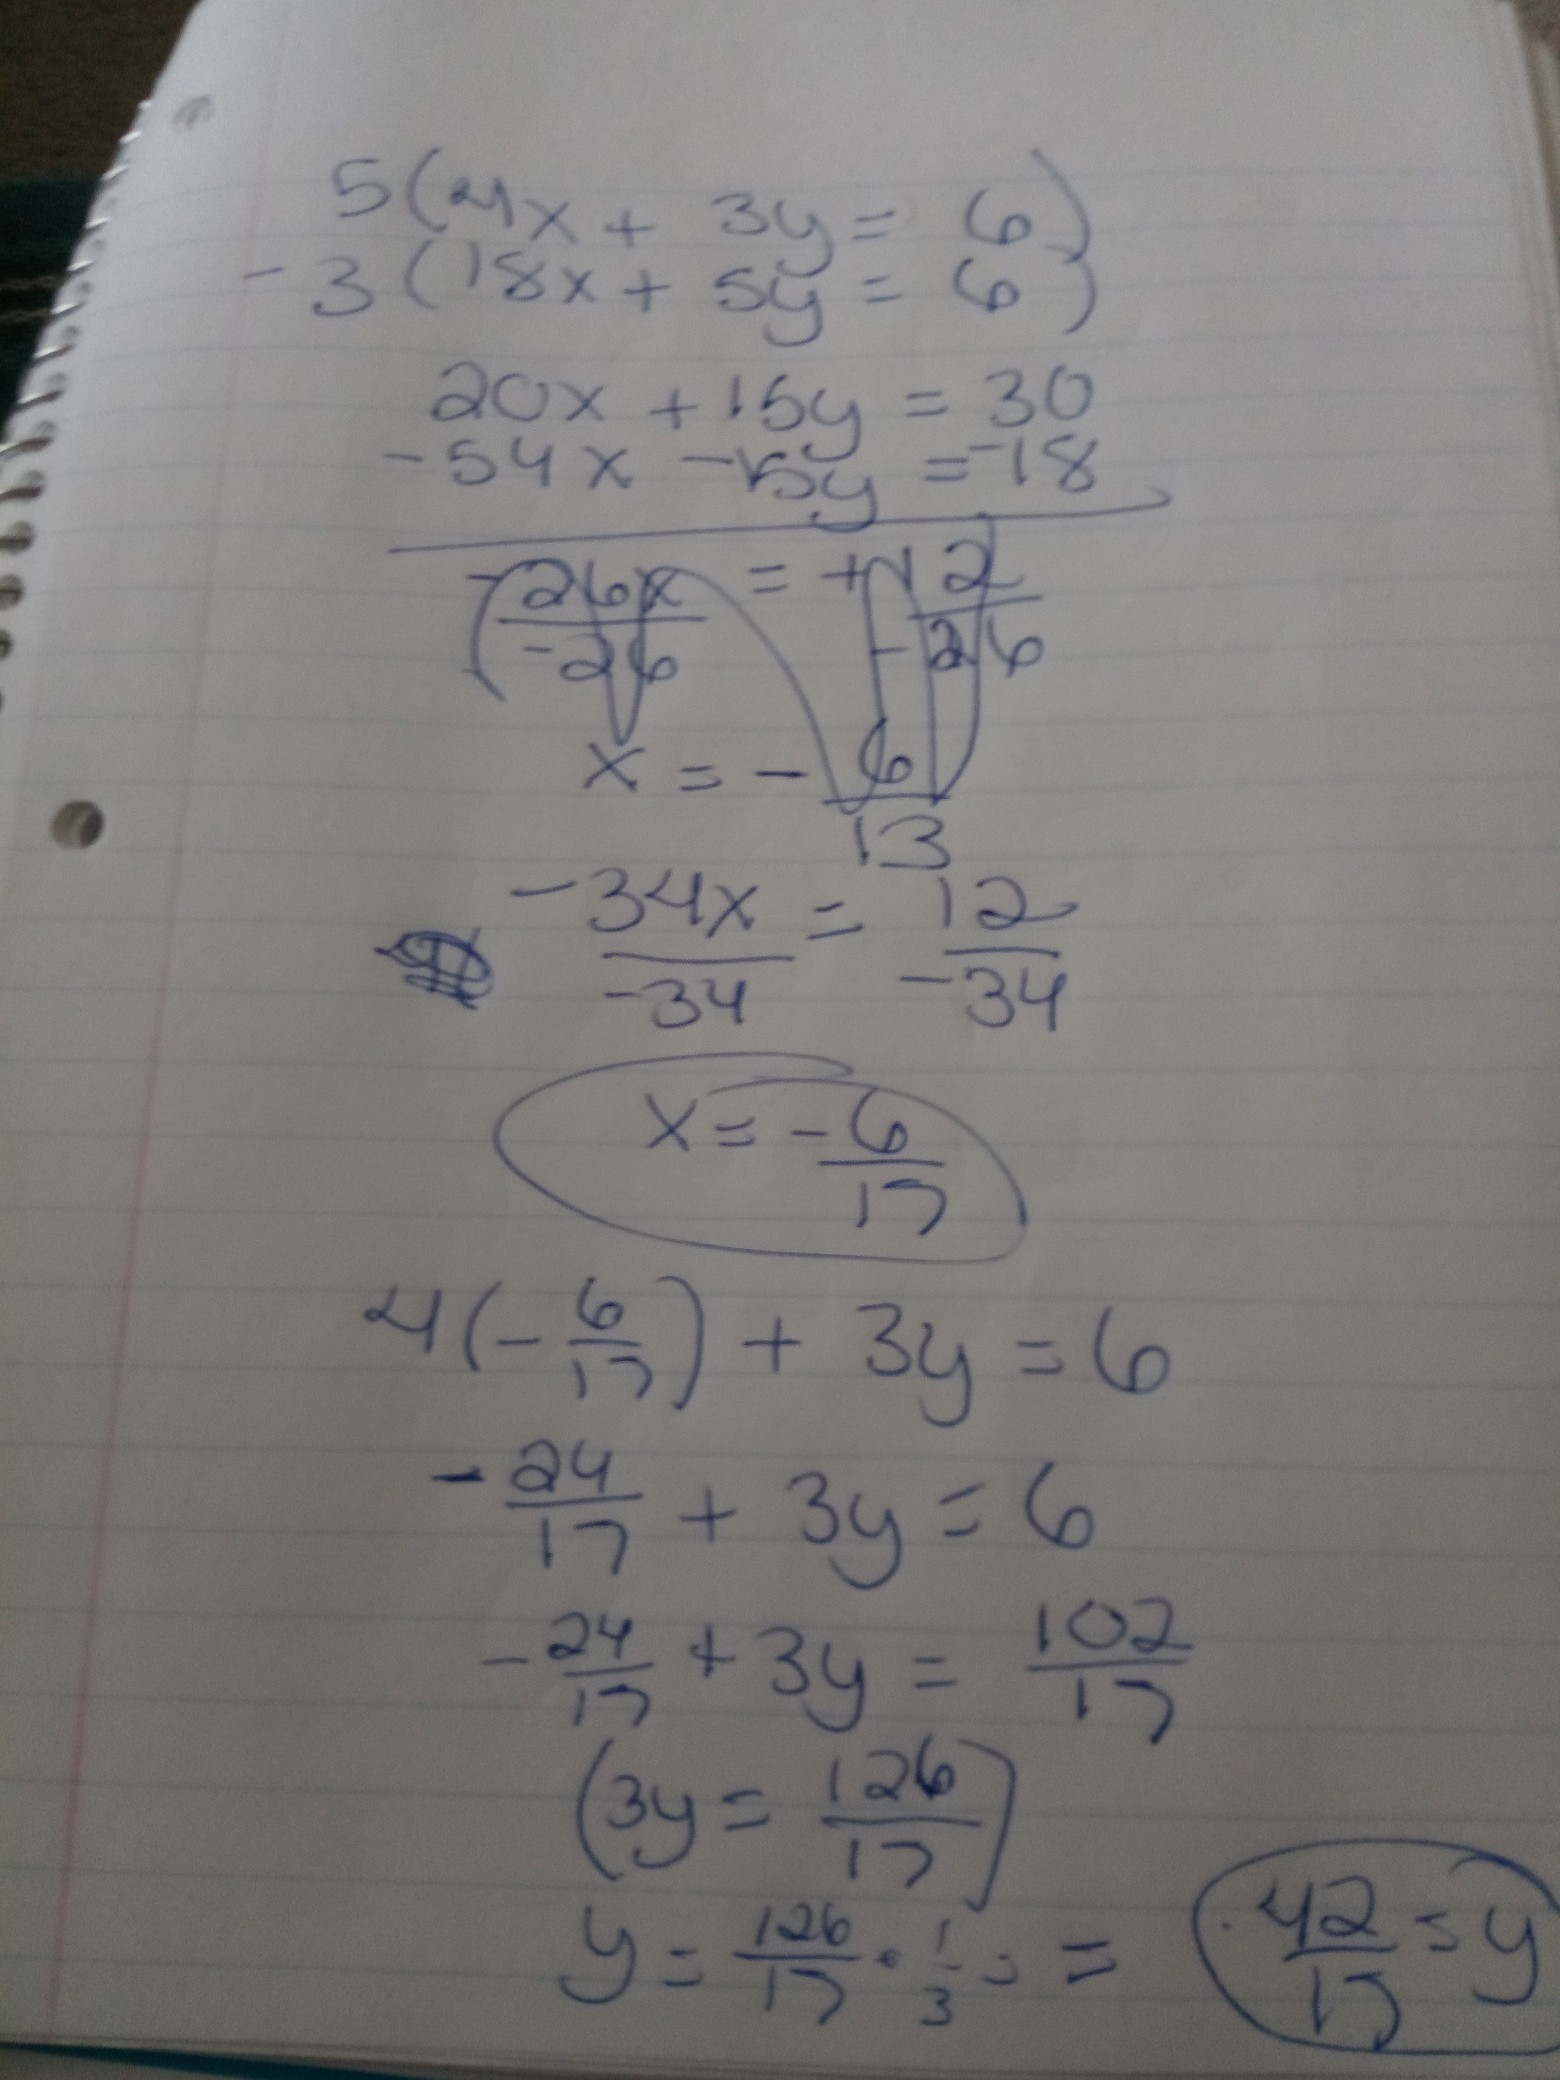 5(4x + 3y = 6)
-3(18x + 5y = 6)
20x + 15y = 30
-54x -15y = -18
-26x/-26 = +12/-26
x = - 6/13
-34x/-34 = 12/-34
x = - 6/17
4(- 6/17) + 3y = 6
- 24/17 + 3y = 6
- 24/17 + 3y = 102/17
(3y = 126/17)
y = 126/17 · 1/3 = = 42/17 = y